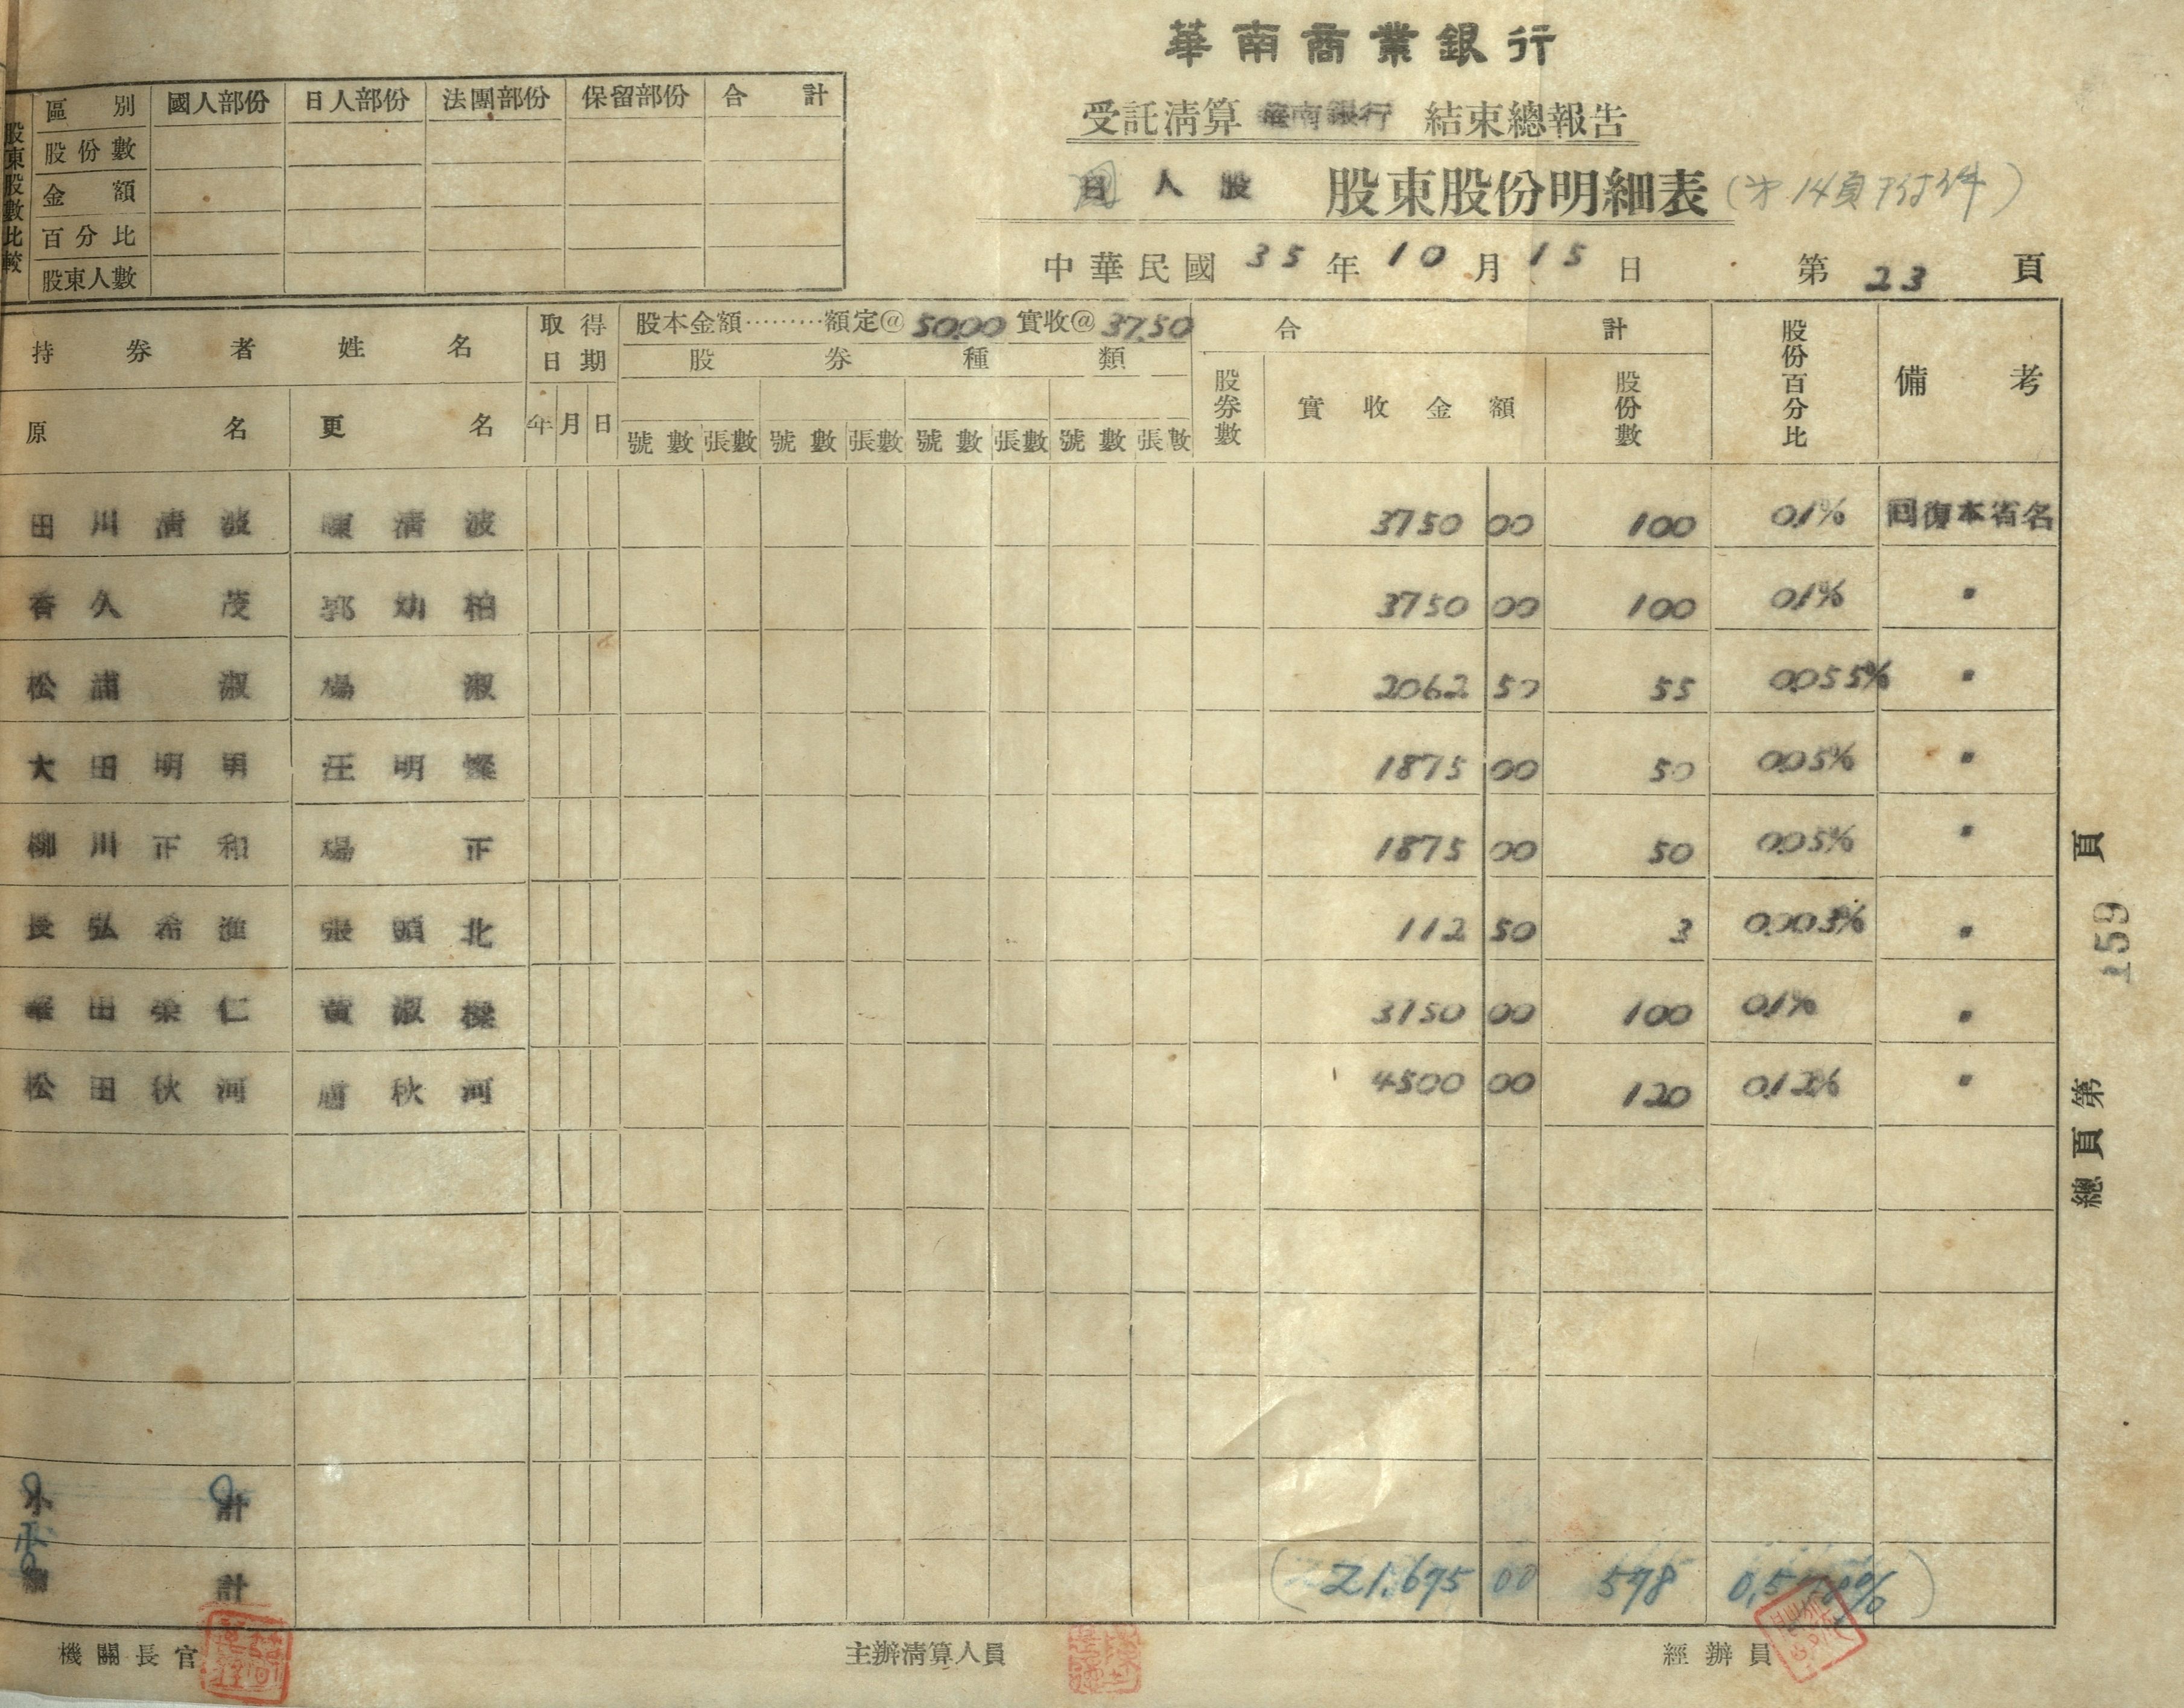 華南商業銀行
受託清算 華南銀行 結束總報告
人股 股東股份明細表(第14頁附件)
中華民國 35年10月15日 第23頁
股東股數比較
區別 國人部份 日人部份 法團部份 保留部份 合計
股份數
金額
百分比
股東人數
持券者姓名 取得日期 股本金額………額定@50.00 實收@37.50 合計 股份百分比 備考
股券種類
原名 更名 年 月 日 號數 張數 號數 張數 號數 張數 號數 張數 股券數 實收金額 股份數
田川清波 陳清波 3750 00 100 0.1% 回復本省名
香久茂 郭幼柏 3750 00 100 0.1% 〃
松浦淑 楊淑 2062 50 55 0.055% 〃
大田明男 汪明燦 1875 00 50 0.05% 〃
柳川正和 楊正 1875 00 50 0.05% 〃
長弘希進 張頭北 112 50 3 0.003% 〃
田榮仁 黃淑樑 3750 00 100 0.1% 〃
松田秋河 秋河 4500 00 120 0.12% 〃
小計
計 (21.675 00 578 )
機關長官 主辦清算人員 經辦員
總頁第 159 頁